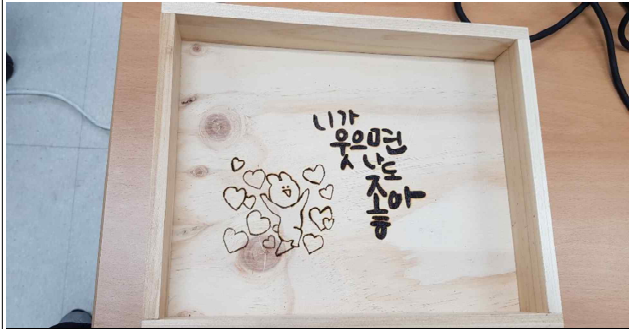 니가
웃으면
나도
좋아